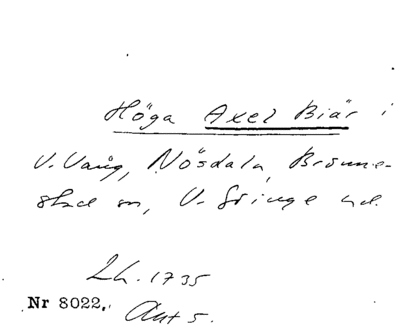 Höga Axel Biär i
V. Vång, Nösdala, Brönne-
stad sn, V. Göinge hd.
Lh. 1735
Nr 8022. Akt 5.